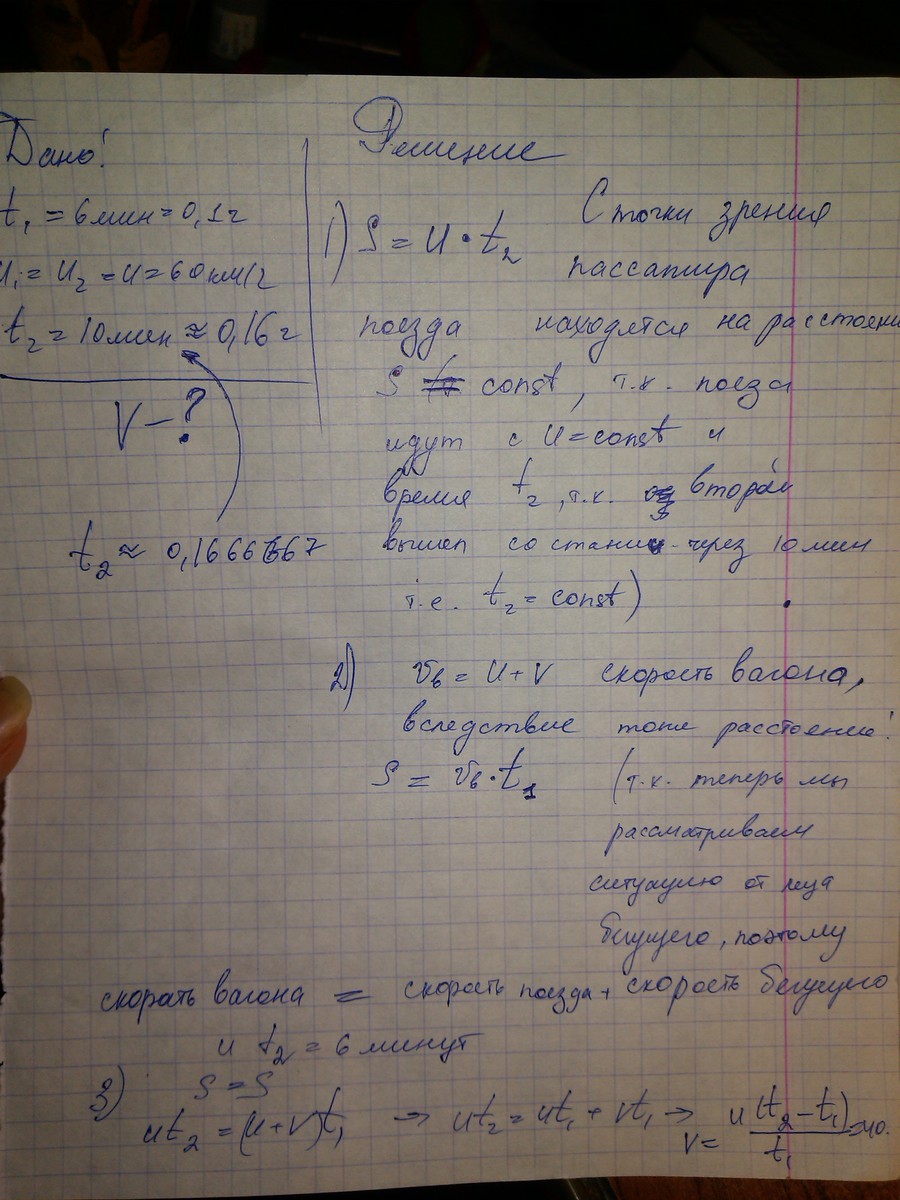 Дано:
Решение
t₁ = 6 мин = 0,1 ч
u₁ = u₂ = u = 60 км/ч
t₂ = 10 мин ≈ 0,16 ч
V - ?
t₂ ≈ 0,1666667
1) S = u · t₂ С точки зрения
пассажира
поезда находятся на расстояни
S const, т.к. поезд
идут с u = const и
время t₂, т.к. второй
вышел со станц через 10 мин
т.е. t₂ = const)
2) v_в = u + v скорость вагона,
вследствие тоже расстояние:
S = v_в · t₁ (т.к. теперь мы
рассматриваем
ситуацию от лица
бегущего, поэтому
скорать вагона = скорость поезда + скорость бегущего
и t₂ = 6 минут
3) S = S
ut₂ = (u + v)t₁ → ut₂ = ut₁ + vt₁ → v = u(t₂ - t₁)/t₁ = 40.